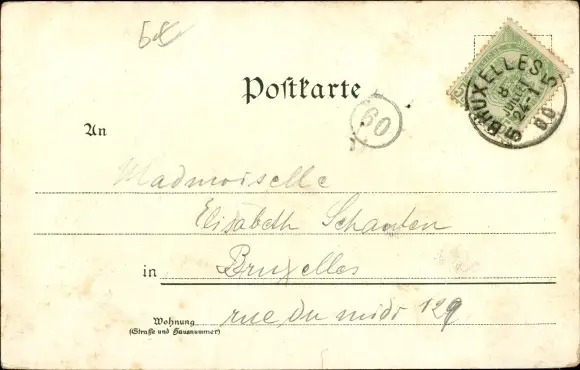 Postkarte
60
BRUXELLES 5
8
JUIL
24-1
00
An
Madmoiselle
Elisabeth Schouten
in Bruxelles
Wohnung rue du midi 129
(Straße und Hausnummer)